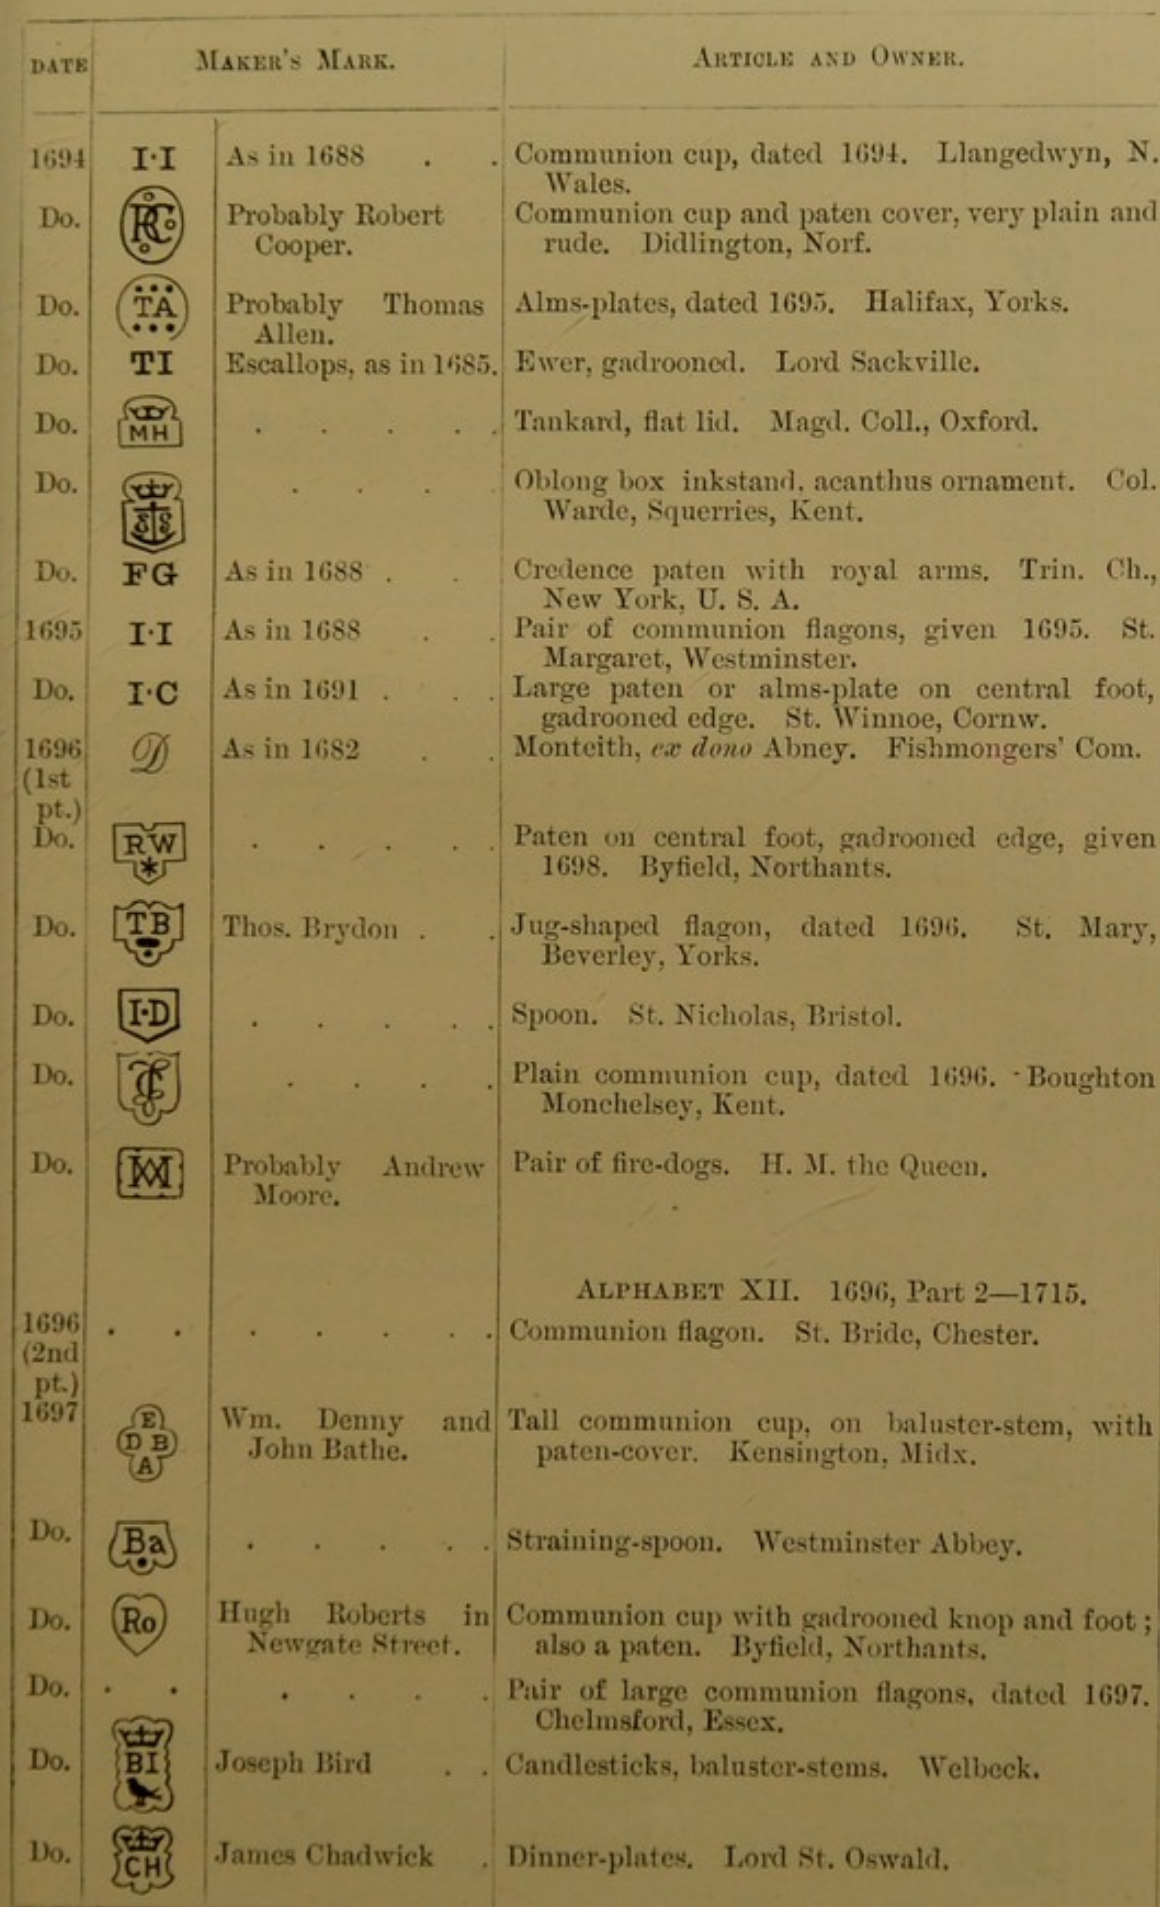 DATE MAKER'S MARK. ARTICLE AND OWNER.
1694 I·I As in 1688 . . Communion cup, dated 1694. Llangedwyn, N.
Wales.
Do. RC Probably Robert Communion cup and paten cover, very plain and
Cooper. rude. Didlington, Norf.
Do. TA Probably Thomas Alms-plates, dated 1695. Halifax, Yorks.
Allen.
Do. TI Escallops, as in 1685. Ewer, gadrooned. Lord Sackville.
Do. MH . . . . . Tankard, flat lid. Magd. Coll., Oxford.
Do. . . . . Oblong box inkstand, acanthus ornament. Col.
Warde, Squerries, Kent.
Do. FG As in 1688 . . Credence paten with royal arms. Trin. Ch.,
New York, U. S. A.
1695 I·I As in 1688 . . Pair of communion flagons, given 1695. St.
Margaret, Westminster.
Do. I·C As in 1691 . . . Large paten or alms-plate on central foot,
gadrooned edge. St. Winnoe, Cornw.
1696 D As in 1682 . . Monteith, ex dono Abney. Fishmongers' Com.
(1st
pt.)
Do. RW . . . . . Paten on central foot, gadrooned edge, given
1698. Byfield, Northants.
Do. TB Thos. Brydon . . Jug-shaped flagon, dated 1696. St. Mary,
Beverley, Yorks.
Do. I·D . . . . . Spoon. St. Nicholas, Bristol.
Do. . . . . Plain communion cup, dated 1696. Boughton
Monchelsey, Kent.
Do. Probably Andrew Pair of fire-dogs. H. M. the Queen.
Moore.
ALPHABET XII. 1696, Part 2—1715.
1696 . . . . . . . Communion flagon. St. Bride, Chester.
(2nd
pt.)
1697 E DB A Wm. Denny and Tall communion cup, on baluster-stem, with
John Bathe. paten-cover. Kensington, Midx.
Do. Ba . . . . . Straining-spoon. Westminster Abbey.
Do. Ro Hugh Roberts in Communion cup with gadrooned knop and foot;
Newgate Street. also a paten. Byfield, Northants.
Do. . . . . . . Pair of large communion flagons, dated 1697.
Chelmsford, Essex.
Do. BI Joseph Bird . . Candlesticks, baluster-stems. Welbeck.
Do. CH James Chadwick . Dinner-plates. Lord St. Oswald.